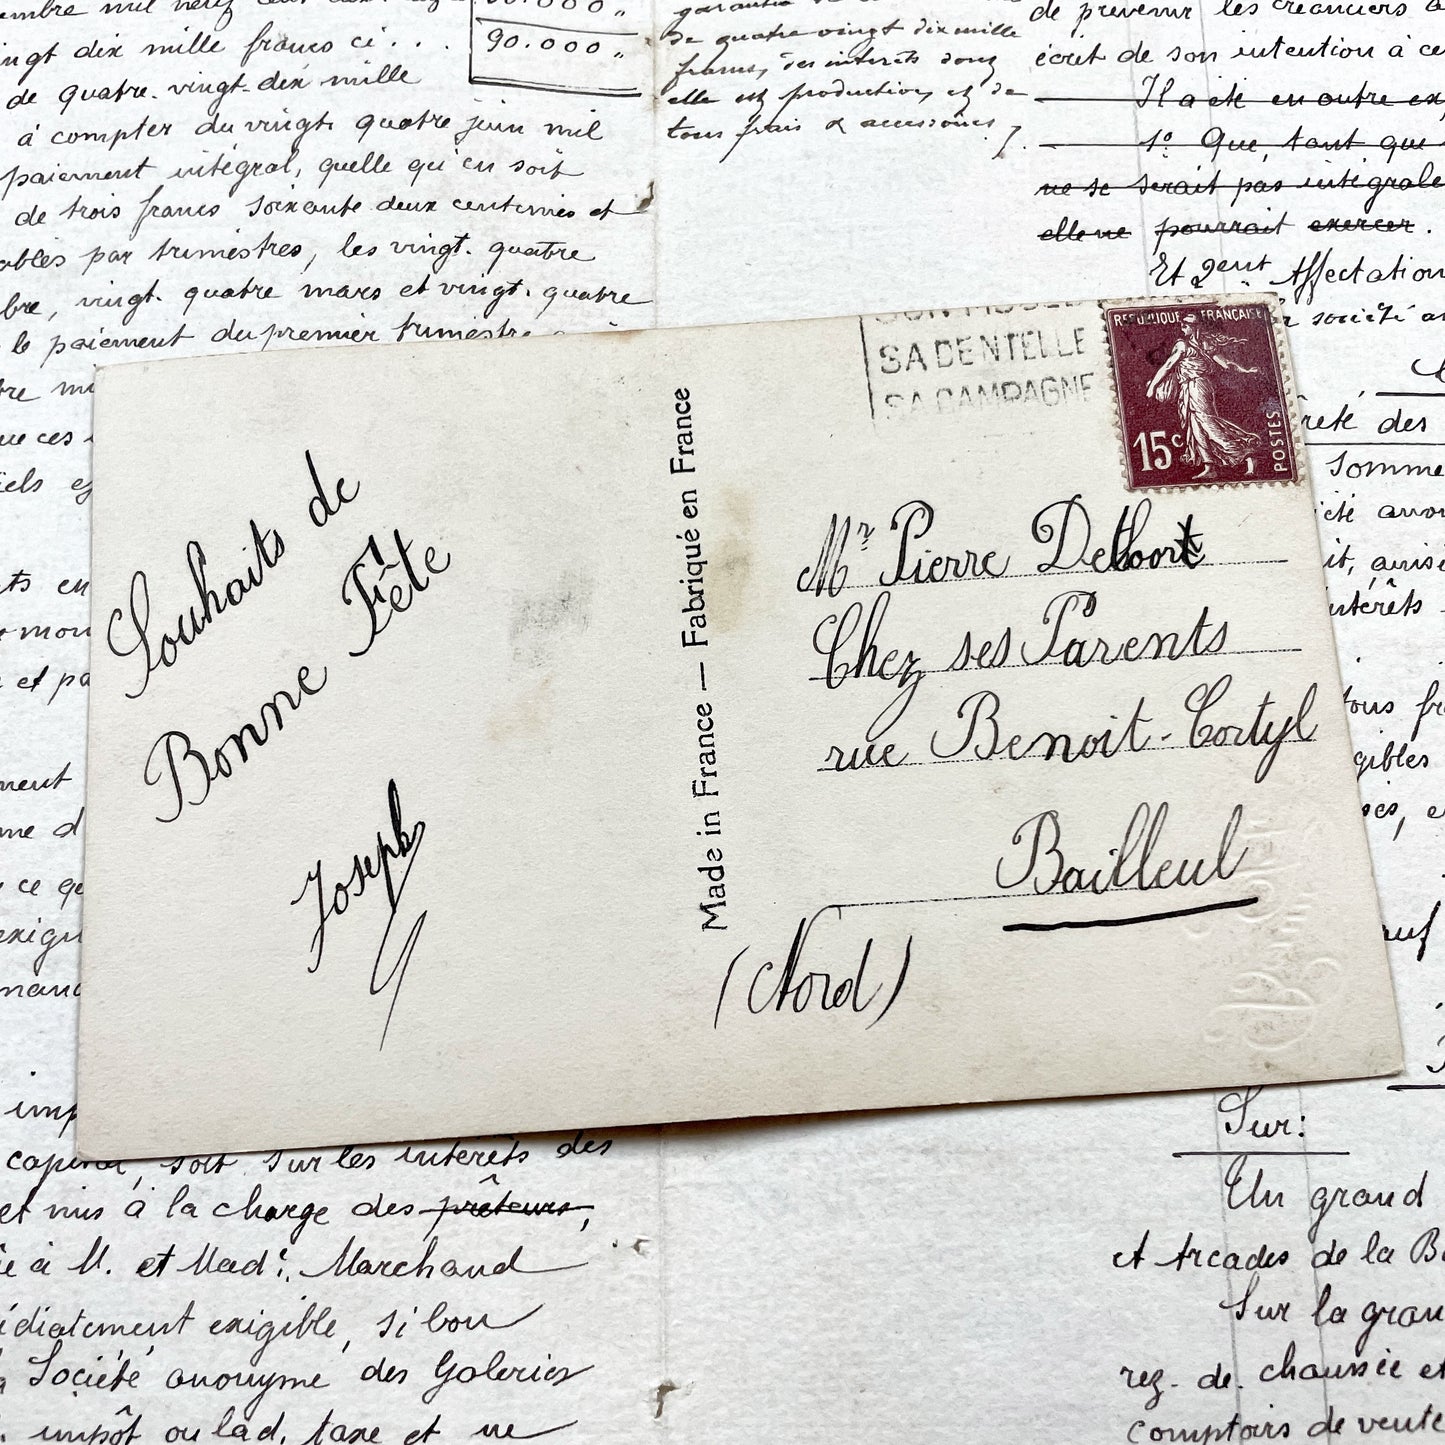 mil neuf cent
90.000 "
ngt dix mille francs ci . . .
90.000 "
de quatre. vingt. dix mille
à compter du vingt. quatre juin mil
paiement intégral, quelle qu'en soit
de trois francs soixante deux centimes et
ables par trimestres, les vingt. quatre
bre, vingt. quatre mars et vingt. quatre
le paiement du premier trimestre
de quatre vingt dix mille
francs, des intérêts dont
elle est production, et de
tous frais & accessoires
de prévenir les créanciers
écrit de son intention à ce
Il a été en outre
1º Que, tant que
ne se serait pas intégrale
elle ne pourrait exercer.
Et 2ent Affectation
société an
reté des
Somme
été anon
it, ainsi
intérêts
tous fr
gibles
SA DENTELLE
SA CAMPAGNE
REPUBLIQUE FRANÇAISE
15c
POSTES
Souhaits de
Bonne Fête
Joseph
Made in France — Fabriqué en France
Mr Pierre Debort
Chez ses Parents
rue Benoit-Cortyl
Bailleul
(Nord)
capital, soit sur les intérêts des
et mis à la charge des prêteurs,
à M. et Made. Marchand
édiatement exigible, si bon
Société anonyme des Galeries
impôt ou lad. taxe et ne
Sur:
Un grand
et Arcades de la
Sur la gran
rez. de. chaussée et
comptoirs de vente